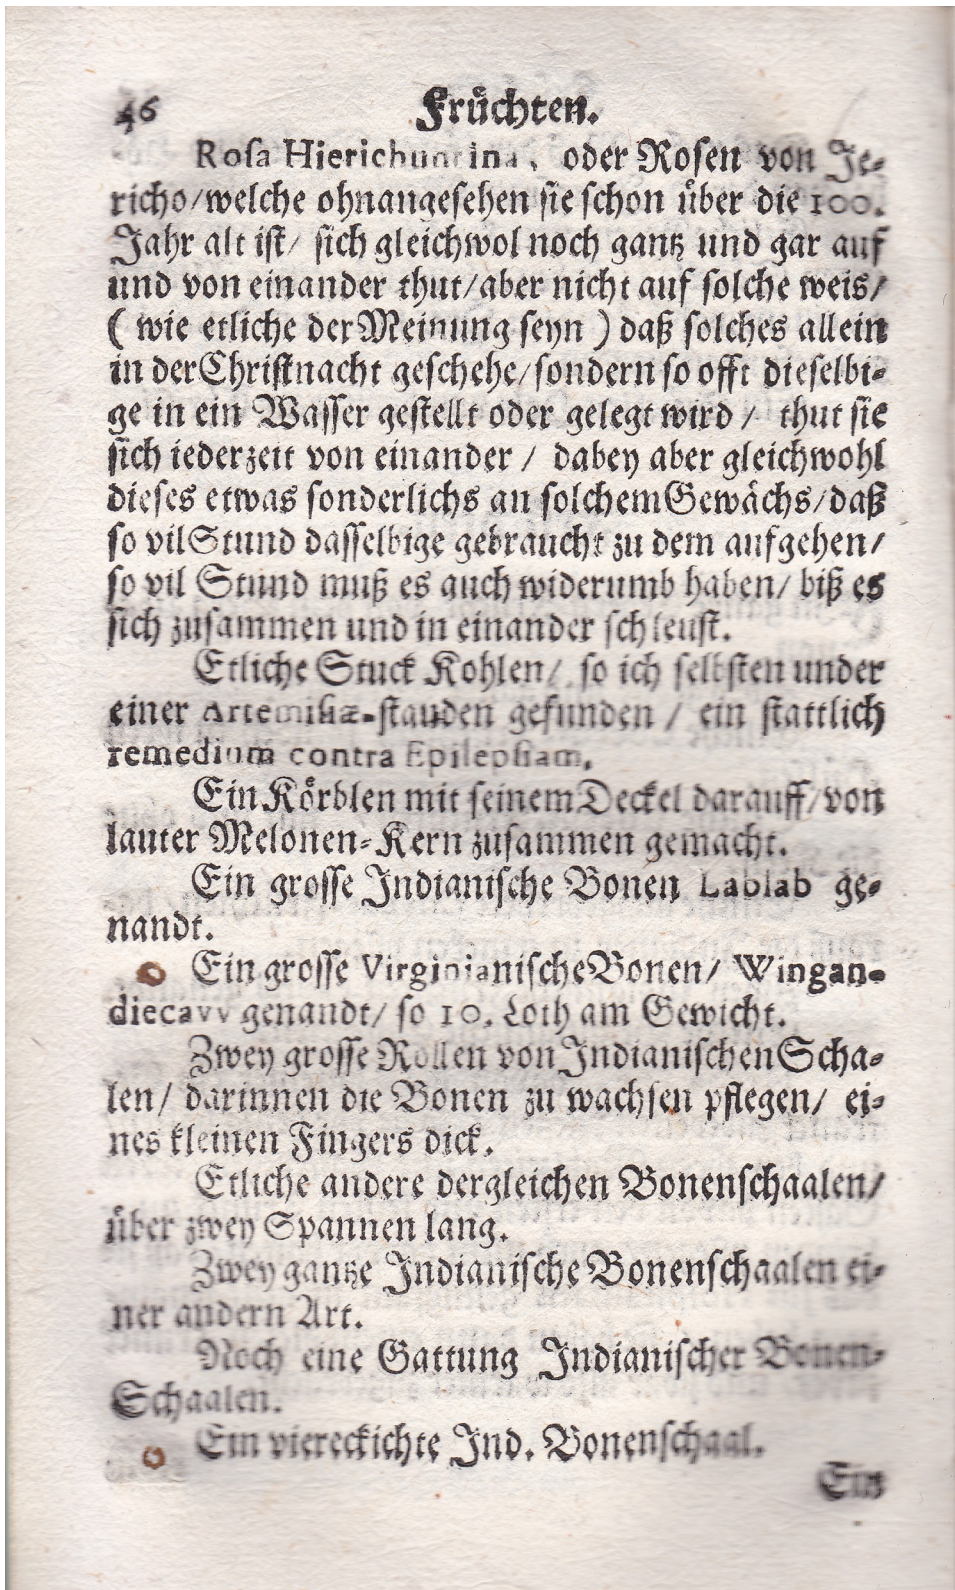 46 Früchten.
Roſa Hierichuntina, oder Roſen von Je-
richo/welche ohnangeſehen ſie ſchon über die 100.
Jahr alt iſt/ ſich gleichwol noch gantz und gar auf
und von einander thut/aber nicht auf ſolche weis/
( wie etliche der Meinung ſeyn ) daß ſolches allein
in der Chriſtnacht geſchehe/ſondern ſo offt dieſelbi-
ge in ein Waſſer geſtellt oder gelegt wird / thut ſie
ſich iederzeit von einander / dabey aber gleichwohl
dieſes etwas ſonderlichs an ſolchem Gewächs/daß
ſo vil Stund daſſelbige gebraucht zu dem aufgehen/
ſo vil Stund muß es auch widerumb haben/ biß es
ſich zuſammen und in einander ſchleuſt.
Etliche Stuck Kohlen/ ſo ich ſelbſten under
einer Artemiſiæ-ſtauden gefunden / ein ſtattlich
remedium contra Epilepſiam.
Ein Körblen mit ſeinem Deckel darauff/von
lauter Melonen-Kern zuſammen gemacht.
Ein groſſe Indianiſche Bonen Lablab ge-
nandt.
Ein groſſe Virginianiſche Bonen/ Wingan-
diecavv genandt/ ſo 10. Loth am Gewicht.
Zwey groſſe Rollen von Indianiſchen Scha-
len/ darinnen die Bonen zu wachſen pflegen/ ei-
nes kleinen Fingers dick.
Etliche andere dergleichen Bonenſchaalen/
über zwey Spannen lang.
Zwey gantze Indianiſche Bonenſchaalen ei-
ner andern Art.
Noch eine Gattung Indianiſcher Bonen-
Schaalen.
Ein viereckichte Ind. Bonenſchaal.
Ein